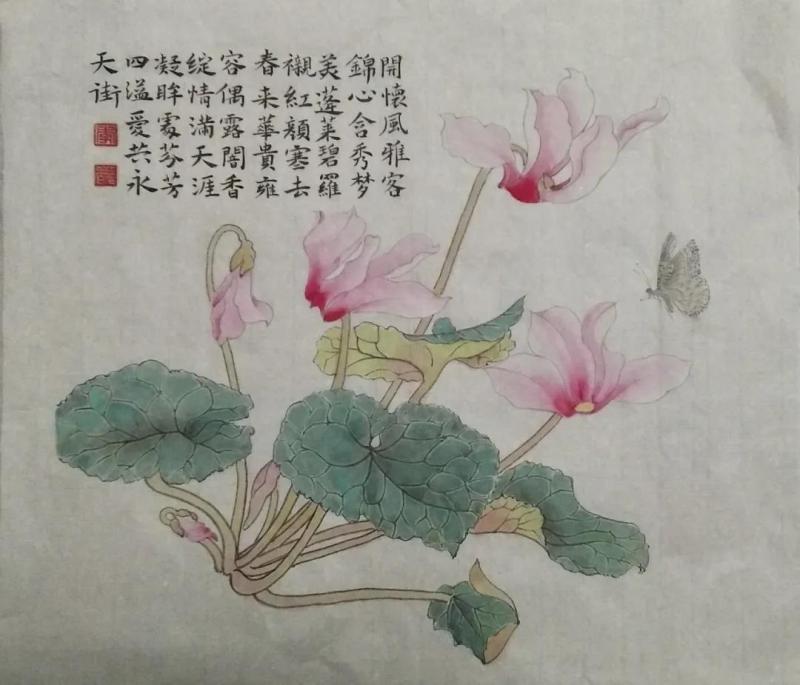 開懷風雅客
錦心含秀梦
美蓬莱碧羅
襯紅頰寒去
春来華貴雍
容偶露闇香
綻情滿天涯
凝眸處芬芳
四溢愛共永
天街